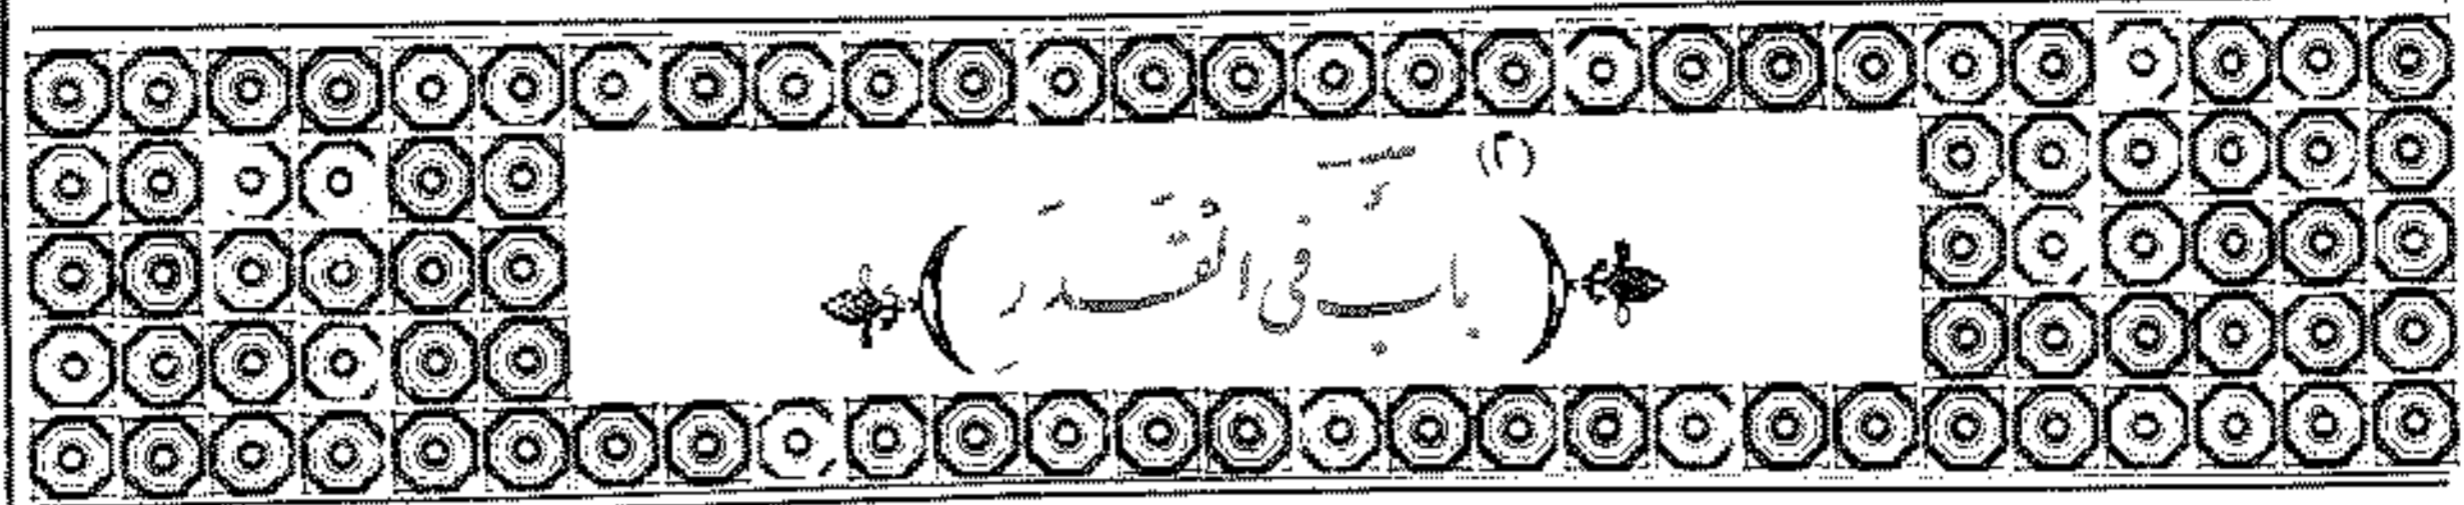 (٣)
بَابٌ فِي الْقَدَرِ